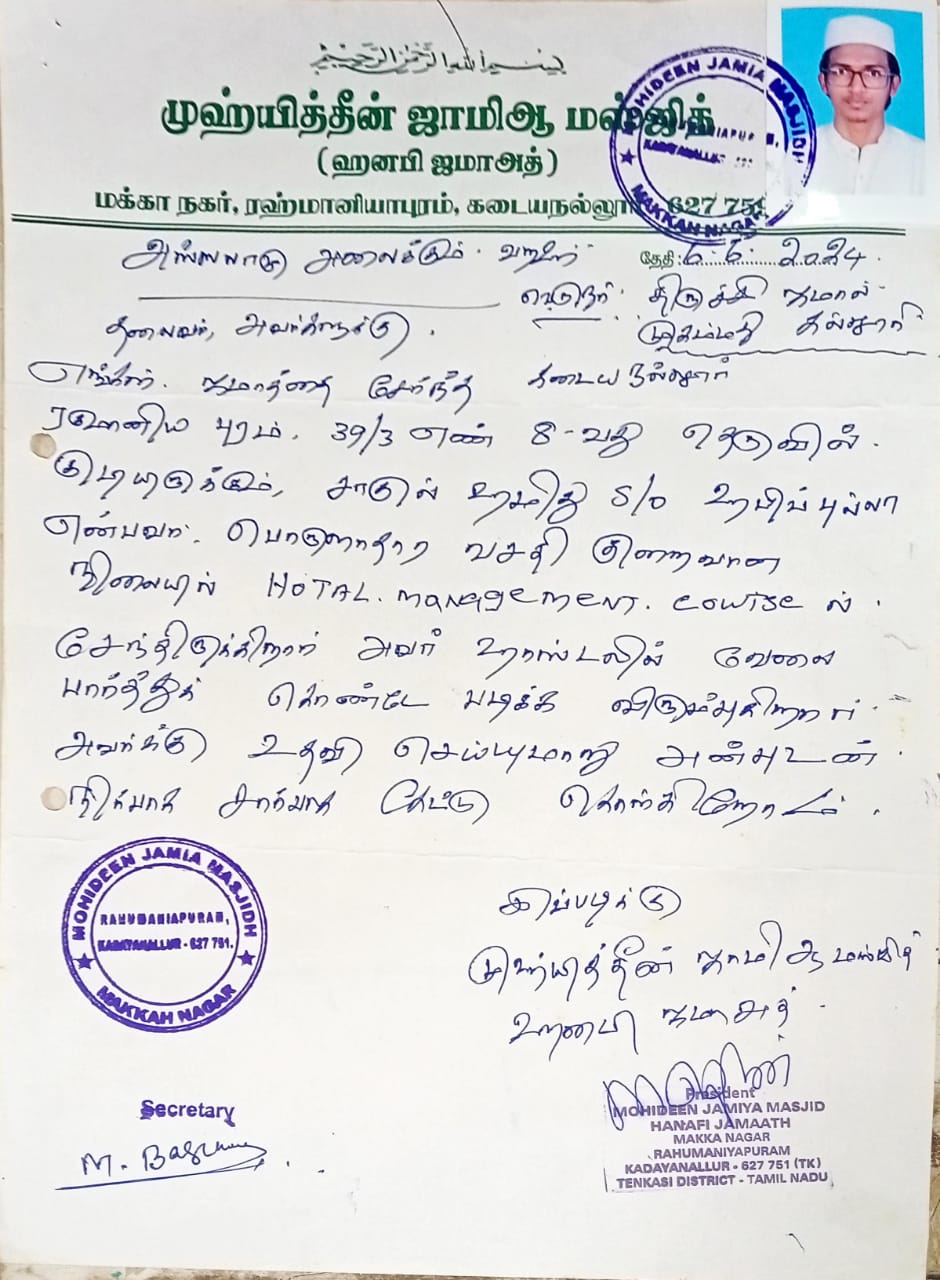 بسم الله الرحمن الرحيم
முஹ்யித்தீன் ஜாமிஆ மஸ்ஜித்
(ஹனபி ஜமாஅத்)
மக்கா நகர், ரஹ்மானியாபுரம், கடையநல்லூர் 627 751
MOHIDEEN JAMIA MASJIDH
KADAYANALLUR
MAKKAH NAGAR
அஸ்ஸலாமு அலைக்கும்
தேதி: 6.6.2024.
பெறுநர் திருச்சி ஜமால்
முகம்மது கல்லூரி
தலைவர், அவர்களுக்கு.
எங்கள். ஜமாத்தை சேர்ந்த கடைய நல்லூர்
ரஹ்மனிய புரம். 39/3 எண் 8-வது தெருவில்.
குடியிருக்கும், சாகுல் ஹமிது S/o ஹபிப்புல்லா
என்பவர். பொருளாதார வசதி குறைவான
நிலையில் HOTAL. management. course ல்.
சேந்திருக்கிறார் அவர் ஹாஸ்டலில் வேலை
பார்த்துக் கொண்டே படிக்க விரும்புகிறார்.
அவர்க்கு உதவி செய்யுமாறு அன்புடன்.
நிர்வாக சார்வாக கேட்டு கொள்கிறோம்.
இப்படிக்கு
முஹ்யித்தீன் ஜாமிஆ மஸ்ஜித்
ஹனபி ஜமாஅத்.
MOHIDEEN JAMIA MASJIDH
RAHUMANIAPURAM,
KADAYANALLUR - 627 751.
MAKKAH NAGAR
Secretary
President
MOHIDEEN JAMIYA MASJID
HANAFI JAMAATH
MAKKA NAGAR
RAHUMANIYAPURAM
KADAYANALLUR - 627 751 (TK)
TENKASI DISTRICT - TAMIL NADU